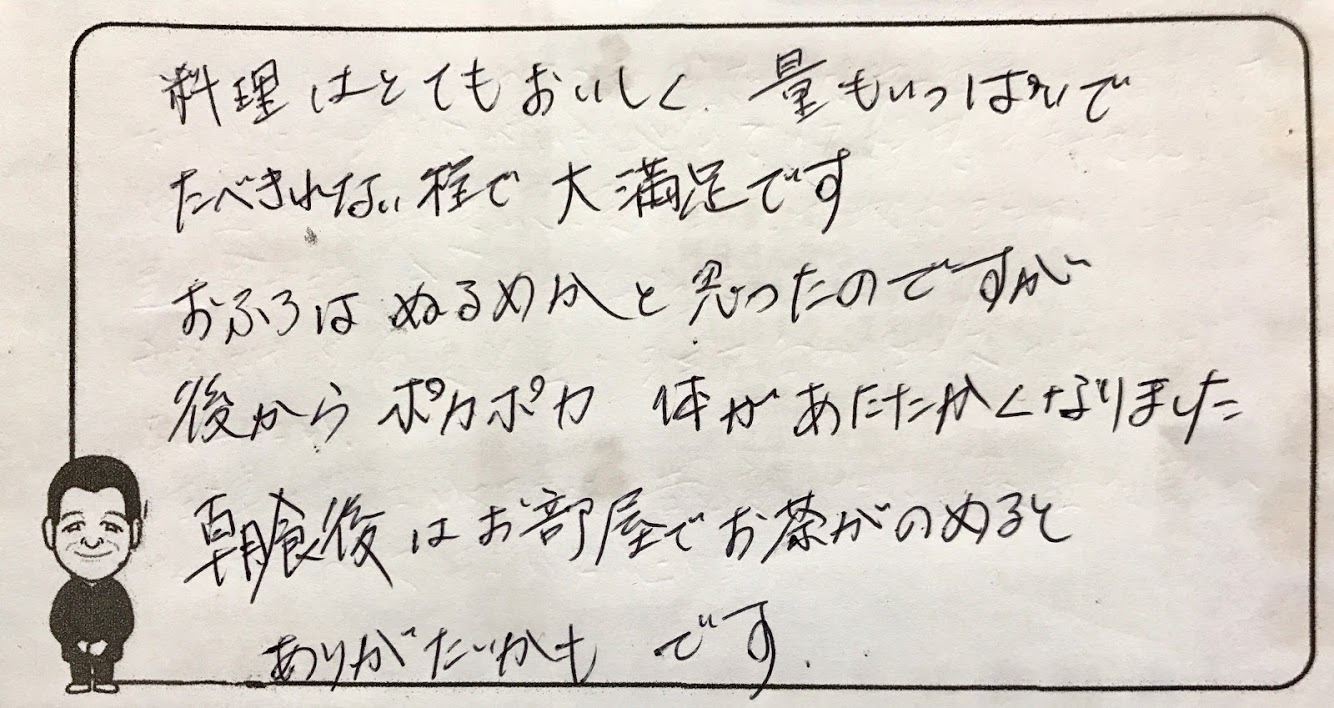 料理はとてもおいしく、量もいっぱいで
たべきれない程で 大満足です
おふろは ぬるめかと思ったのですが
後から ポカポカ 体があたたかくなりました
朝食後はお部屋でお茶がのめると
ありがたいかも です.